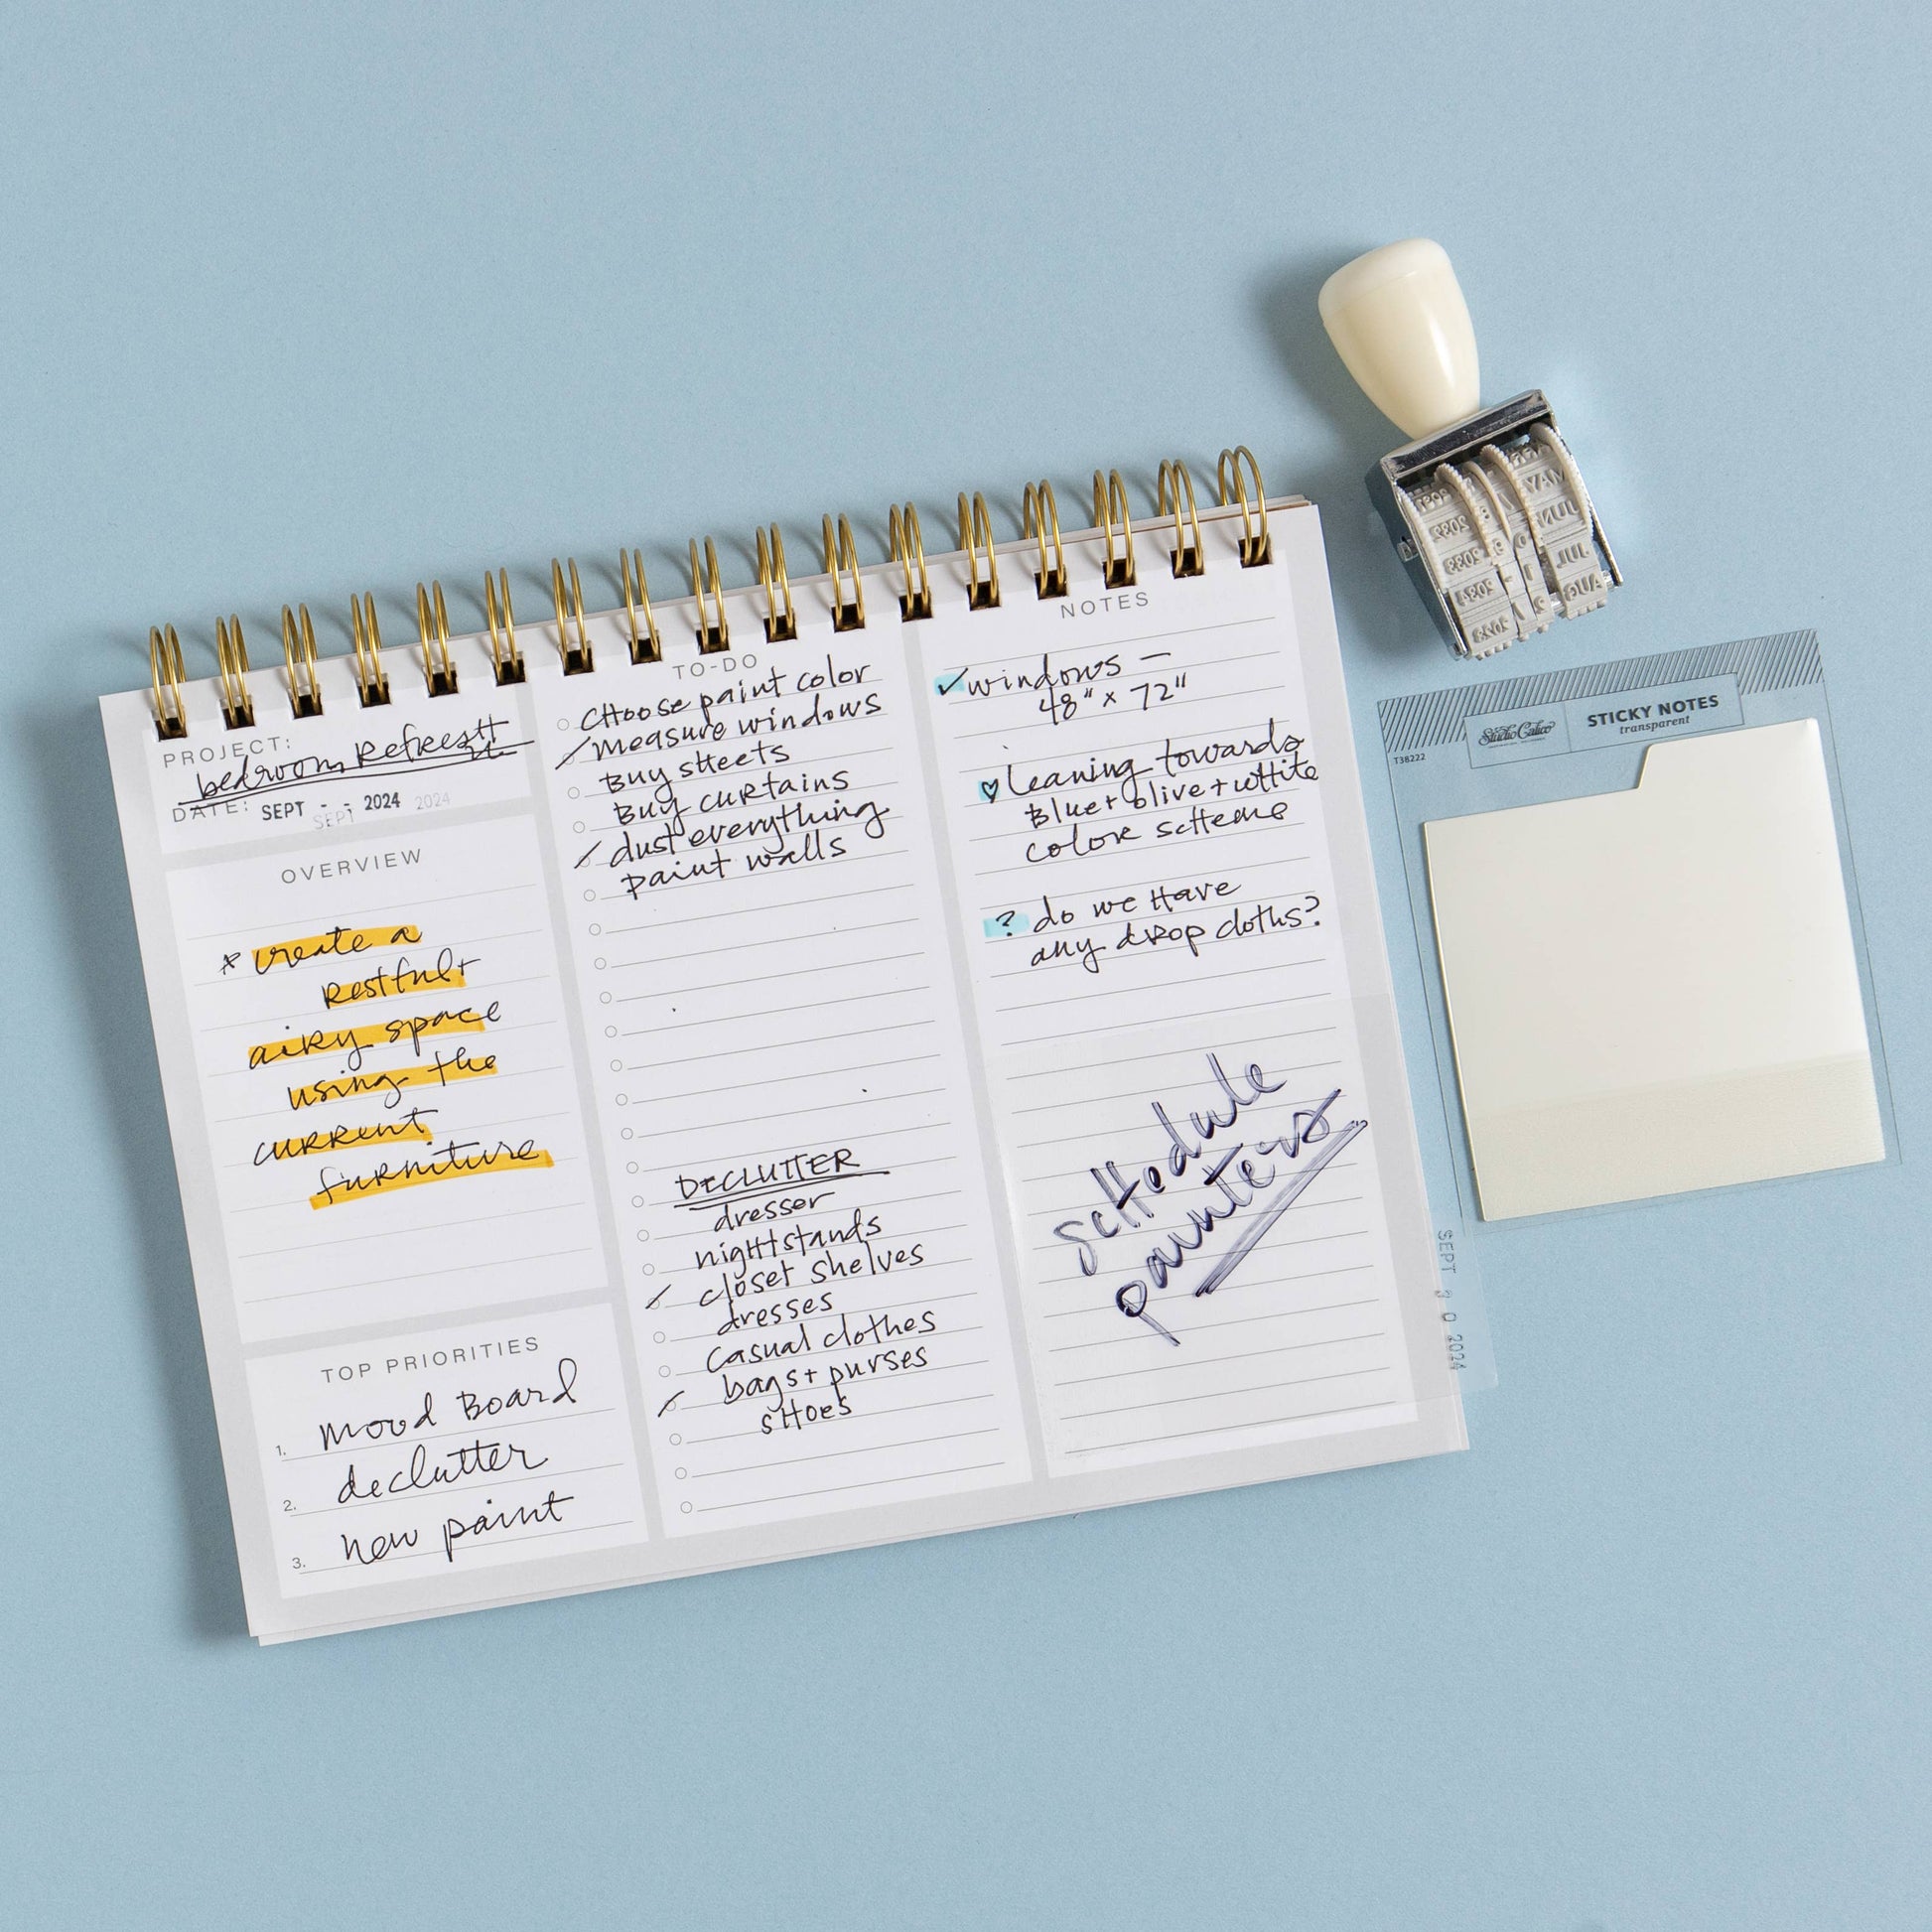 PROJECT:
bedroom Refresh
DATE: SEPT - - 2024 2024
SEPT
OVERVIEW
* create a
restful +
airy space
using the
current
furniture
TOP PRIORITIES
1. mood Board
2. declutter
3. new paint
TO-DO
Choose paint color
✓ measure windows
Buy sheets
Buy curtains
✓ dust everything
paint walls
DECLUTTER
dresser
nightstands
✓ closet shelves
dresses
casual clothes
✓ bags + purses
shoes
NOTES
✓ windows —
48" x 72"
♡ leaning towards
Blue + olive + white
color scheme
? do we have
any drop cloths?
schedule
painters
MAY
JUN
JUL
AUG
Studio Calico
STICKY NOTES
transparent
T38222
SEPT 3 0 2024